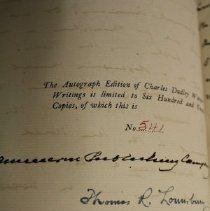 The Autograph Edition of Charles Dudley
Writings is limited to Six Hundred and
Copies, of which this is
No. 541
Publishing
Thomas R. Lounsbury